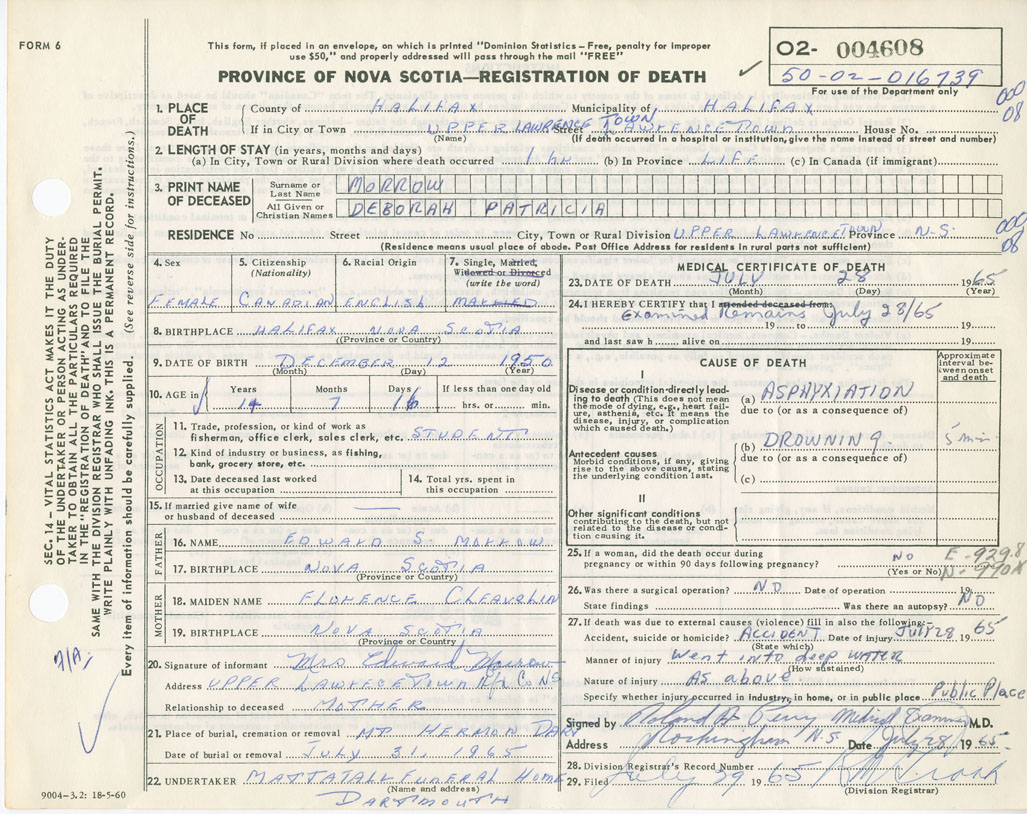 FORM 6
This form, if placed in an envelope, on which is printed "Dominion Statistics – Free, penalty for improper
use $50," and properly addressed will pass through the mail "FREE"
PROVINCE OF NOVA SCOTIA—REGISTRATION OF DEATH
O2- 004608
50-02-016739
For use of the Department only
000
08
SEC. 14 – VITAL STATISTICS ACT MAKES IT THE DUTY
OF THE UNDERTAKER OR PERSON ACTING AS UNDER-
TAKER TO OBTAIN ALL THE PARTICULARS REQUIRED
IN THE "REGISTRATION OF DEATH" AND TO FILE THE
SAME WITH THE DIVISION REGISTRAR WHO SHALL ISSUE THE BURIAL PERMIT.
WRITE PLAINLY WITH UNFADING INK. THIS IS A PERMANENT RECORD.
Every item of information should be carefully supplied. (See reverse side for instructions.)
1. PLACE OF DEATH
County of HALIFAX Municipality of HALIFAX
If in City or Town UPPER LAWRENCE TOWN Street LAWRENCETOWN House No.
(Name) (If death occurred in a hospital or institution, give the name instead of street and number)
2. LENGTH OF STAY (in years, months and days)
(a) In City, Town or Rural Division where death occurred 1 hr (b) In Province LIFE (c) In Canada (if immigrant)
3. PRINT NAME OF DECEASED
Surname or Last Name MORROW
All Given or Christian Names DEBORAH PATRICIA
RESIDENCE No. Street City, Town or Rural Division UPPER LAWRENCETOWN Province N.S.
(Residence means usual place of abode. Post Office Address for residents in rural parts not sufficient)
000
08
4. Sex 5. Citizenship (Nationality) 6. Racial Origin 7. Single, Married, Widowed or Divorced (write the word)
FEMALE CANADIAN ENGLISH MARRIED
8. BIRTHPLACE HALIFAX NOVA SCOTIA
(Province or Country)
9. DATE OF BIRTH DECEMBER 12 1950
(Month) (Day) (Year)
10. AGE in Years Months Days If less than one day old
14 7 16 hrs. or min.
OCCUPATION
11. Trade, profession, or kind of work as
fisherman, office clerk, sales clerk, etc. STUDENT
12. Kind of industry or business, as fishing,
bank, grocery store, etc.
13. Date deceased last worked at this occupation
14. Total yrs. spent in this occupation
15. If married give name of wife
or husband of deceased —
FATHER
16. NAME EDWARD S. MORROW
17. BIRTHPLACE NOVA SCOTIA
(Province or Country)
MOTHER
18. MAIDEN NAME FLORENCE CLEAVELIN
19. BIRTHPLACE NOVA SCOTIA
(Province or Country)
20. Signature of informant Mrs Edward Morrow
Address UPPER LAWRECETOWN Hfx Co NS
Relationship to deceased MOTHER
21. Place of burial, cremation or removal MT HERMON DAR
Date of burial or removal JULY 31, 1965
22. UNDERTAKER MATTATALL FUNERAL HOME
(Name and address)
DARTMOUTH
9004-3.2: 18-5-60
MEDICAL CERTIFICATE OF DEATH
23. DATE OF DEATH JULY 28 1965
(Month) (Day) (Year)
24. I HEREBY CERTIFY that I attended deceased from:
Examined Remains July 28/65
19 to 19
and last saw h alive on 19
CAUSE OF DEATH
Approximate interval between onset and death
I
Disease or condition directly leading to death (This does not mean the mode of dying, e.g., heart failure, asthenia, etc. It means the disease, injury, or complication which caused death.)
(a) ASPHYXIATION
due to (or as a consequence of)
Antecedent causes
Morbid conditions, if any, giving rise to the above cause, stating the underlying condition last.
(b) DROWNING 5 min
due to (or as a consequence of)
(c)
II
Other significant conditions
contributing to the death, but not related to the disease or condition causing it.
25. If a woman, did the death occur during
pregnancy or within 90 days following pregnancy? NO
(Yes or No)
E-929.8
N-990X
26. Was there a surgical operation? NO Date of operation 19
State findings Was there an autopsy? NO
27. If death was due to external causes (violence) fill in also the following:
Accident, suicide or homicide? ACCIDENT Date of injury July 28 1965
(State which)
Manner of injury Went into deep WATER
(How sustained)
Nature of injury As above
Specify whether injury occurred in industry, in home, or in public place Public Place
Signed by Roland A Perry Medical Examiner M.D.
Address Rockingham N.S. Date July 28 1965
28. Division Registrar's Record Number
29. Filed July 29 1965
(Division Registrar)